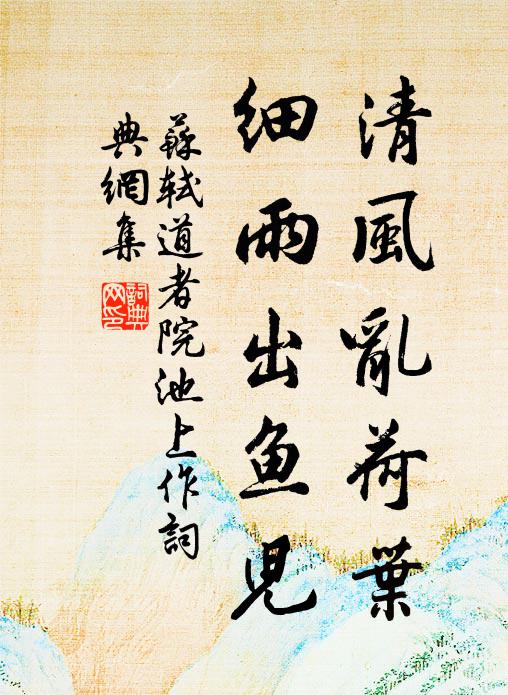 清風亂荷葉
細雨出魚兒
蘇軾道者院池上作詞
典網集
詞典
网印